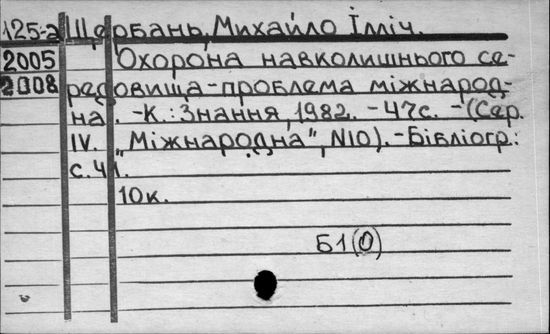 125-а Щербань, Михайло Ілліч.
2005 Охорона навколишнього се-
2008 редовища-проблема міжнарод-
на. -К.: Знання, 1982. -47с. -(Сер.
IV. „Міжнародна", N10). -Бібліогр.:
с.41.
10к.
Б1(0)